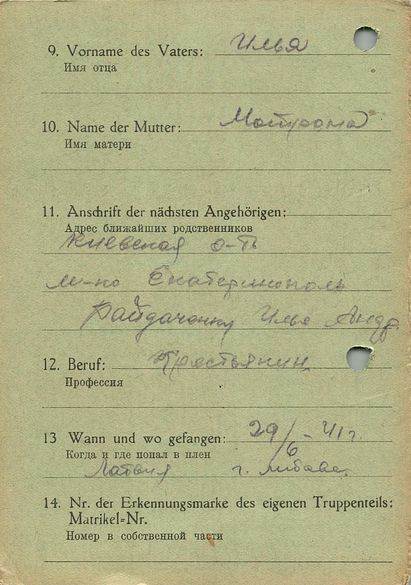 9. Vorname des Vaters: Илья
Имя отца
10. Name der Mutter: Мотрона
Имя матери
11. Anschrift der nächsten Angehörigen:
Адрес ближайших родственников
Киевская о-ть
м-ко Екатеринополь
Байдаченку Илье Андр
12. Beruf: Крестьянин
Профессия
13 Wann und wo gefangen: 29/6-41г.
Когда и где попал в плен
Латвия г. Либава.
14. Nr. der Erkennungsmarke des eigenen Truppenteils:
Matrikel=Nr.
Номер в собственной части